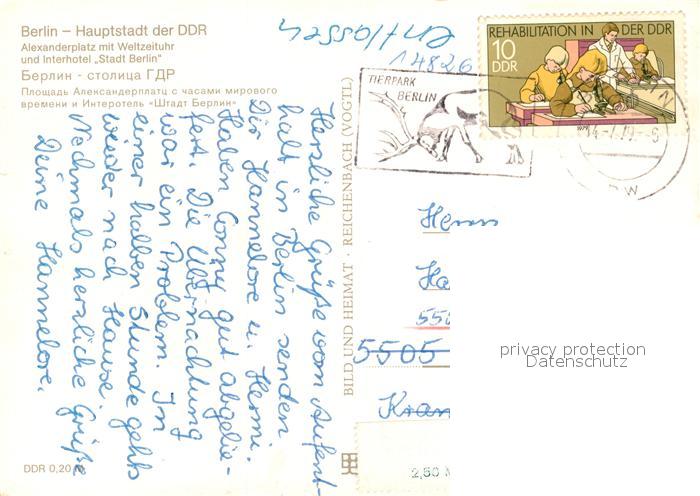 Berlin – Hauptstadt der DDR
Alexanderplatz mit Weltzeituhr
und Interhotel „Stadt Berlin“
Берлин - столица ГДР
Площадь Александерплатц с часами мирового
времени и Интеротель «Штадт Берлин»
14826
REHABILITATION IN DER DDR
10
DDR
1979
TIERPARK
BERLIN
Herzliche Grüße vom Aufent-
halt in Berlin senden
Dir Hannelore u. Hermi.
Haben Conny gut abgelie-
fert. Die Übernachtung
war ein Problem. In
einer halben Stunde gehts
wieder nach Hause.
Nochmals herzliche Grüße
Deine Hannelore.
BILD UND HEIMAT · REICHENBACH (VOGTL)
Herrn
Ha
550
5505
Kran
privacy protection
Datenschutz
DDR 0,20 M
2,50 M